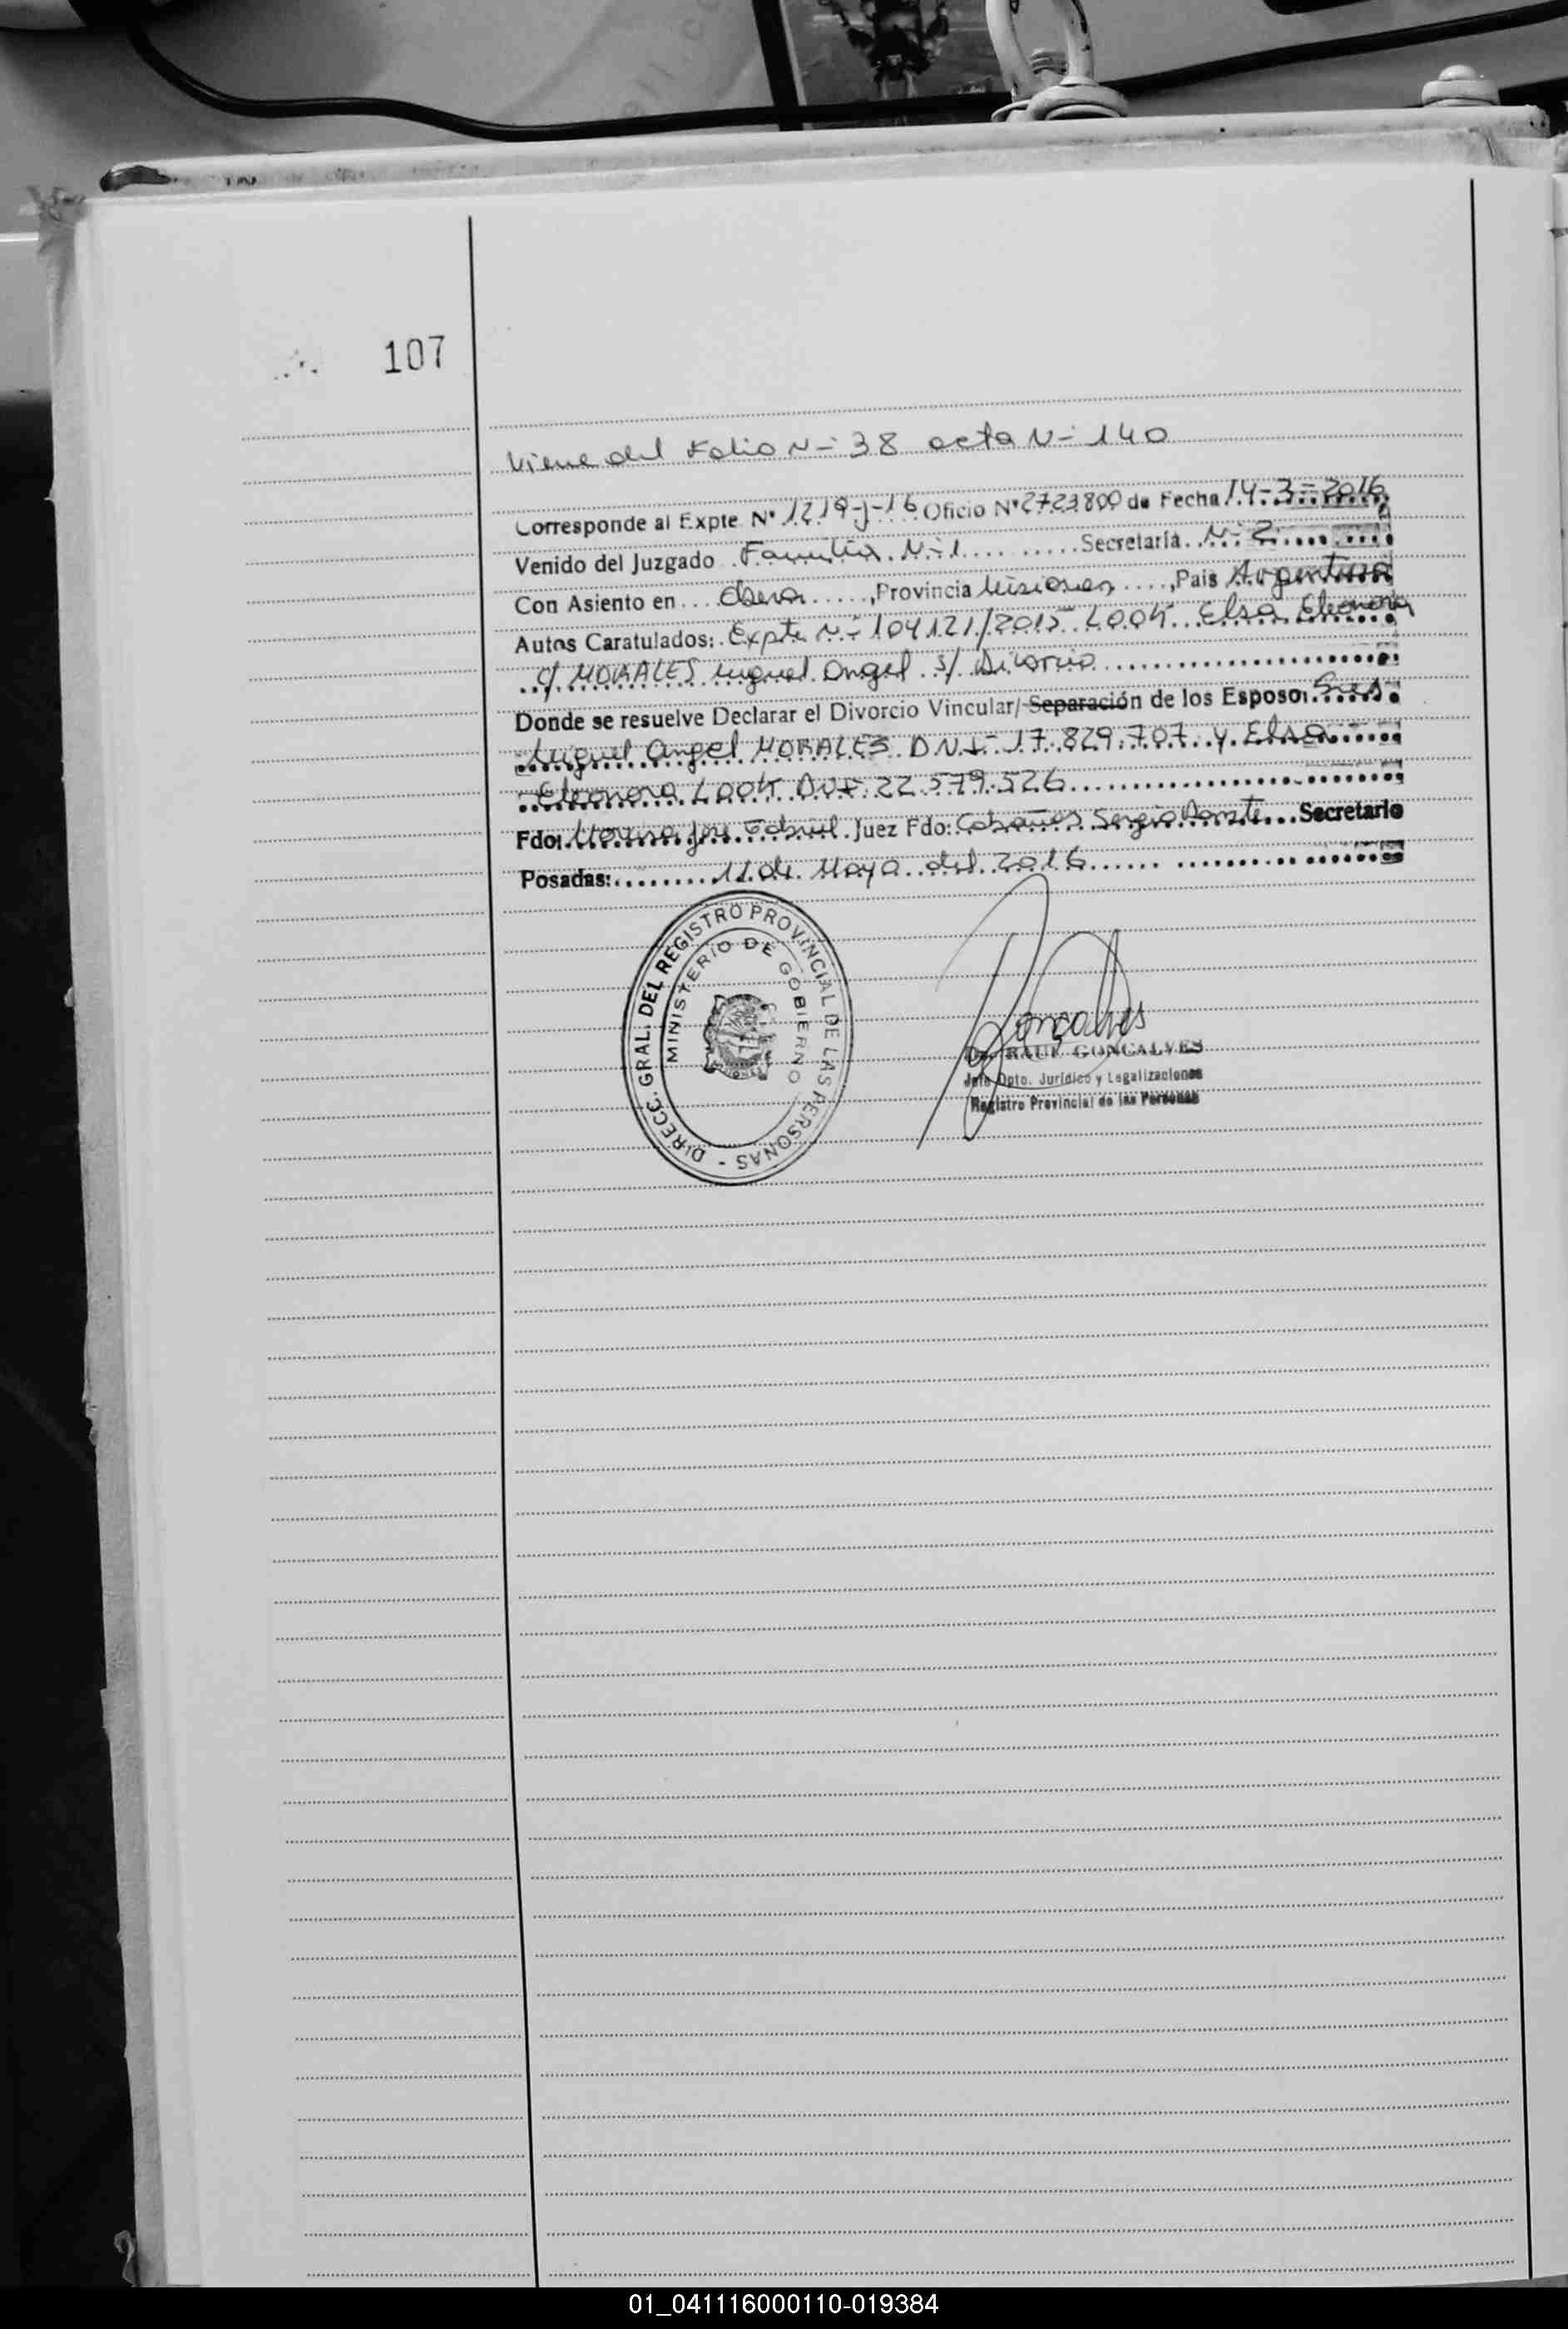 107
Viene del Folio N-: 38 acta N-: 140
Corresponde al Expte N° 1219-J-16 Oficio N° 2723800 de Fecha 14-3-2016
Venido del Juzgado Familia N-: 1 Secretaría N-: 2
Con Asiento en Obera, Provincia Misiones, Pais Argentina
Autos Caratulados: Expte N-: 104121/2015 LOOK Elsa Eleonora
c/ MORALES Miguel Angel s/ Divorcio
Donde se resuelve Declarar el Divorcio Vincular/ Separación de los Esposos: Sres.
Miguel Angel MORALES DNI- 17.829.707 y Elsa
Eleonora LOOK DNI 22.579.526
Fdo: Moreira Jose Gabriel Juez Fdo: Cabañas Sergio Secretario
Posadas: 11 de Mayo del 2016
DIRECC. GRAL. DEL REGISTRO PROVINCIAL DE LAS PERSONAS -
MINISTERIO DE GOBIERNO
MISIONES
Goncalves
Dr. RAUL GONCALVES
Jefe Dpto. Jurídico y Legalizaciones
Registro Provincial de las Personas
01_041116000110-019384